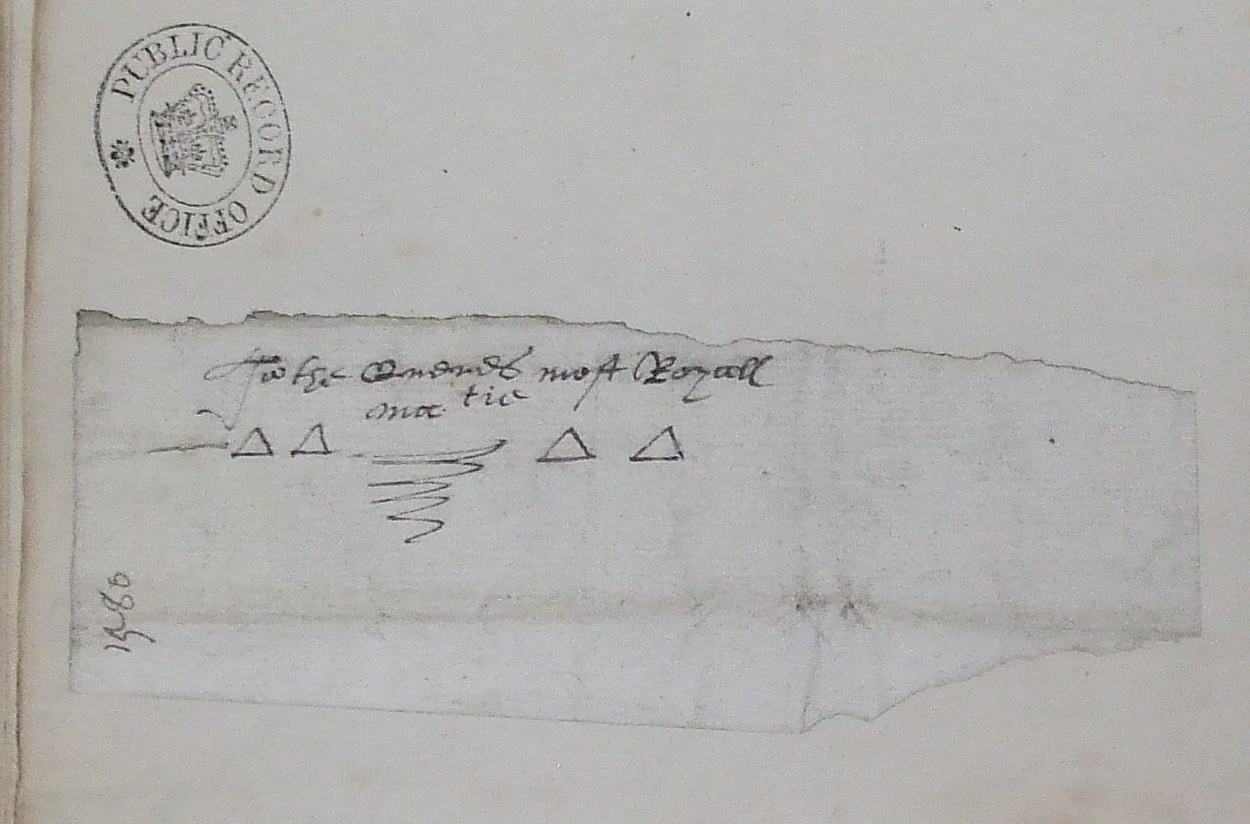 PUBLIC RECORD OFFICE
To the Quenes most Royall
ma tie
Δ Δ Δ Δ
1580